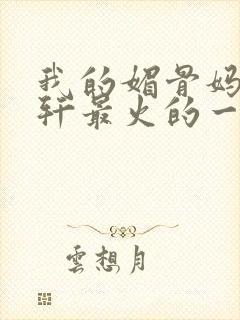 我的媚骨妈
轩最火的一
雲想月